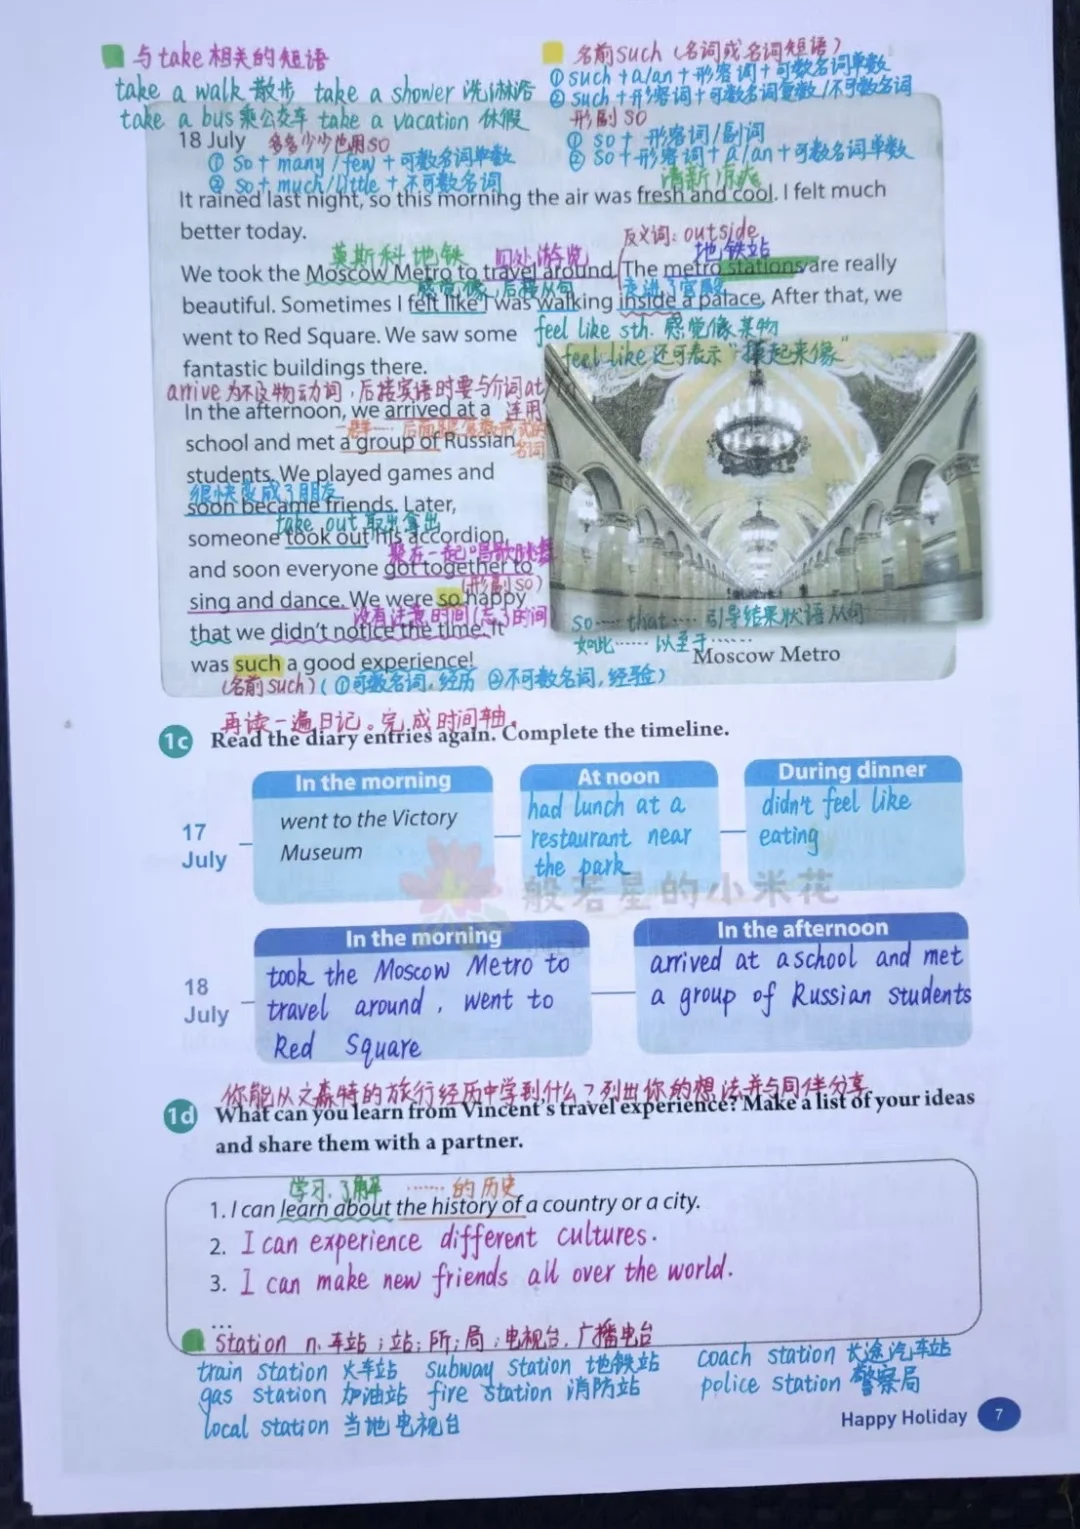 与take相关的短语
take a walk 散步 take a shower 洗淋浴
take a bus 乘公交车 take a vacation 休假
名前such（名词或名词短语）
① such + a/an + 形容词 + 可数名词单数
② such + 形容词 + 可数名词复数/不可数名词
形副 so
① so + 形容词/副词
② so + 形容词 + a/an + 可数名词单数
18 July 多多少少也用so
① so + many/few + 可数名词单数
② so + much/little + 不可数名词
清新凉爽
It rained last night, so this morning the air was fresh and cool. I felt much
better today.
反义词: outside
莫斯科地铁 四处游览 地铁站
We took the Moscow Metro to travel around. The metro stations are really
感觉像,后接从句 走进了宫殿
beautiful. Sometimes I felt like I was walking inside a palace. After that, we
went to Red Square. We saw some
feel like sth. 感觉像某物
feel like 还可表示“摸起来像”
fantastic buildings there.
arrive 为不及物动词,后接宾语时要与介词at/
连用
In the afternoon, we arrived at a
一群…… 后面
名词
school and met a group of Russian
students. We played games and
很快变成了朋友
soon became friends. Later,
take out 取出拿出
someone took out his accordion,
聚在一起唱歌跳舞
and soon everyone got together to
(形副so)
sing and dance. We were so happy
没有注意时间(忘了时间
that we didn't notice the time. It
so…… that…… 引导结果状语从句
如此…… 以至于……
was such a good experience!
(名前such) (①可数名词,经历 ②不可数名词,经验)
Moscow Metro
再读一遍日记。完成时间轴。
1c Read the diary entries again. Complete the timeline.
17
July
In the morning
went to the Victory
Museum
At noon
had lunch at a
restaurant near
the park
During dinner
didn't feel like
eating
般若星的小米花
18
July
In the morning
took the Moscow Metro to
travel around, went to
Red Square
In the afternoon
arrived at a school and met
a group of Russian students
你能从文森特的旅行经历中学到什么?列出你的想法并与同伴分享
1d What can you learn from Vincent's travel experience? Make a list of your ideas
and share them with a partner.
学习,了解 ……的历史
1. I can learn about the history of a country or a city.
2. I can experience different cultures.
3. I can make new friends all over the world.
...
station n. 车站;站;所;局;电视台,广播电台
train station 火车站 subway station 地铁站 coach station 长途汽车站
gas station 加油站 fire station 消防站 police station 警察局
local station 当地电视台
Happy Holiday 7